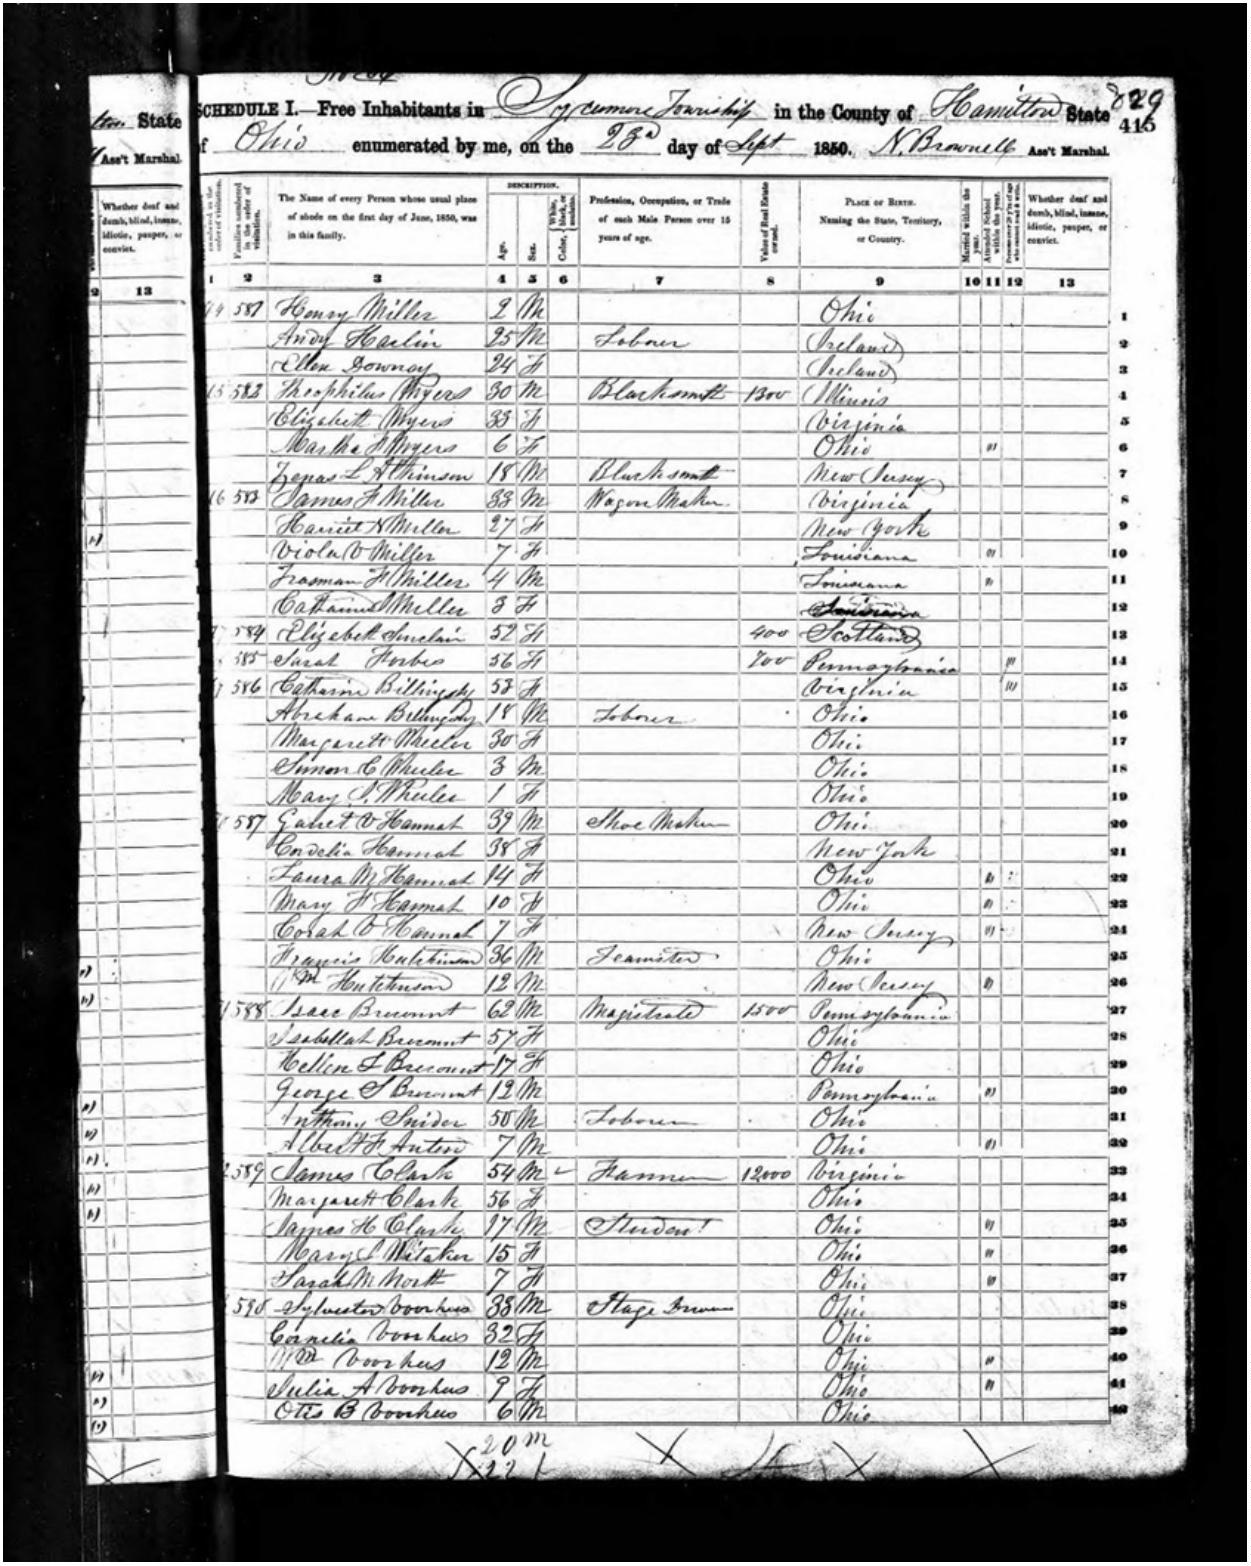 829
SCHEDULE I.—Free Inhabitants in Sycamore Township in the County of Hamilton State
415
of Ohio enumerated by me, on the 23d day of Sept 1850. N. Brownell Ass't Marshal.
State
Ass't Marshal.
Whether deaf and dumb, blind, insane, idiotic, pauper, or convict.
13
Families numbered in the order of visitation.
The Name of every Person whose usual place of abode on the first day of June, 1850, was in this family.
DESCRIPTION.
Age.
Sex.
Color, White, black, or mulatto.
Profession, Occupation, or Trade of each Male Person over 15 years of age.
Value of Real Estate owned.
PLACE OF BIRTH. Naming the State, Territory, or Country.
Married within the year.
Attended School within the year.
Whether deaf and dumb, blind, insane, idiotic, pauper, or convict.
1 2 3 4 5 6 7 8 9 10 11 12 13
581 Henry Miller 2 M Ohio 1
Andy Haslin 25 M Laborer Ireland 2
Ellen Downay 24 F Ireland 3
582 Theophilus Myers 30 M Blacksmith 1300 Illinois 4
Elizabeth Myers 33 F Virginia 5
Martha F Myers 6 F Ohio 6
Zenas L Atkinson 18 M Blacksmith New Jersey 7
583 James F Miller 33 M Wagon Maker Virginia 8
Harriet N Miller 27 F New York 9
Viola V Miller 7 F Louisiana 10
F Miller 4 M Louisiana 11
Miller 3 F Louisiana 12
584 Elizabeth Sinclair 52 F 400 Scotland 13
585 Sarah Forbes 56 F 700 Pennsylvania 14
586 Catharine Billingsly 53 F Virginia 15
Abraham Billingsly 18 M Laborer Ohio 16
Margarett Wheeler 30 F Ohio 17
Simon C Wheeler 3 M Ohio 18
Mary S. Wheeler 1 F Ohio 19
587 Garret V Hannah 39 M Shoe Maker Ohio 20
Cordelia Hannah 38 F New York 21
Laura M Hannah 14 F Ohio 22
Mary F Hannah 10 F Ohio 23
Corah V Hannah 7 F New Jersey 24
Francis Hutchinson 36 M Teamster Ohio 25
Wm Hutchinson 12 M New Jersey 26
588 Isaac Brecount 62 M Magistrate 1500 Pennsylvania 27
Isabellah Brecount 57 F Ohio 28
Hellen S Brecount 17 F Ohio 29
George S Brecount 12 M Pennsylvania 30
Anthony Snider 50 M Laborer Ohio 31
Albert F 7 M Ohio 32
589 James Clark 54 M Farmer 12,000 Virginia 33
Margarett Clark 56 F Ohio 34
James H Clark 17 M Student Ohio 35
Mary S Witaker 15 F Ohio 36
Sarah M North 7 F Ohio 37
590 Sylvester Voorhees 33 M Stage Driver Ohio 38
Cornelia Voorhees 32 F Ohio 39
Wm Voorhees 12 M Ohio 40
Julia A Voorhees 9 F Ohio 41
Otis B Voorhees 6 M Ohio 42
20 m
22 f